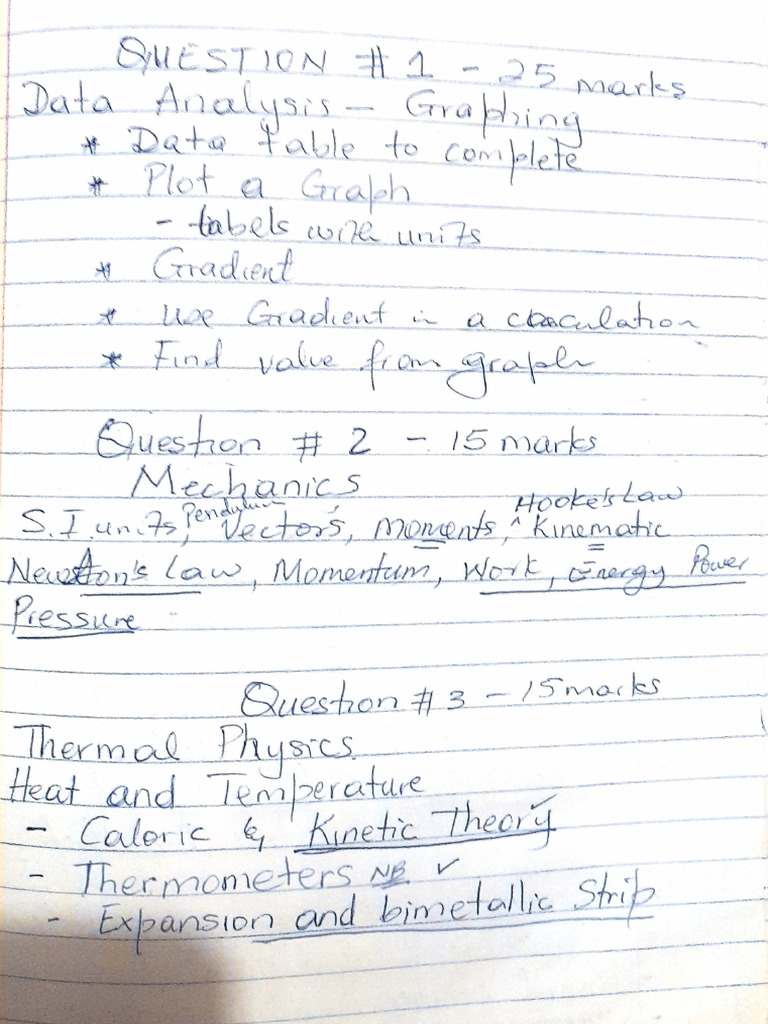 QUESTION # 1 - 25 marks
Data Analysis - Graphing
* Data table to complete
* Plot a Graph
- labels with units
* Gradient
* Use Gradient in a calculation
* Find value from graph
Question # 2 - 15 marks
Mechanics
S.I. units, Pendulum Vectors, moments, ^ Hooke's Law Kinematic
Newton's Law, Momentum, Work, Energy Power
Pressure
Question # 3 - 15 marks
Thermal Physics
Heat and Temperature
- Caloric & Kinetic Theory ✓
- Thermometers NB ✓
- Expansion and bimetallic Strip